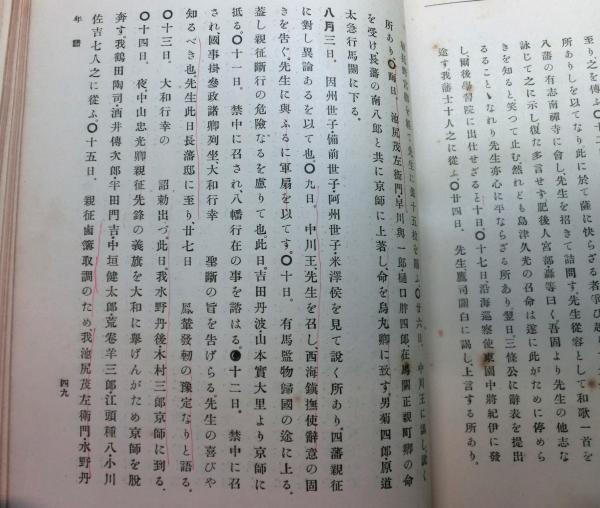 至り、之を傳へしむ、此に於て薩に快らざる者爭ひ起
所ありしを以てなり此に於て薩に快らざる者
八藩の有志南禪寺に會し、先生を招きて詰問す、先生從容として和歌一首を
詠じて之に示し復た多言せず肥後人宮部等曰く、吾固より先生の他志な
きを知ると笑つて止む、然れども島津久光の召命は遂に此がために停めら
ることゝなれり先生亦心に平ならざる所あり、翌日三條公に辭表を提出
し爾後學習院に出仕せざること十日〇十七日沿海巡察使東園中將紀伊に發
途す我藩士十人之に從ふ。〇廿四日。先生鷹司關白に謁し、上言する所あり。
〇廿六日。中川王に謁し、説く
所あり〇晦日。池尻茂左衛門、早川與一郎、樋口胖四郎、在馬關正親町卿の命
を受け長藩の南八郎と共に京師に上著し、命を烏丸卿に致す、男菊四郎、原道
太急行馬關に下る。
八月三日。因州世子、備前世子、阿州世子、米澤侯を見て説く所あり、四藩親征
に對し異論あるを以て也〇九日。中川王、先生を召し、西海鎭撫使辭意の固
きを告ぐ、先生に與ふるに軍扇を以てす。〇十日。有馬監物歸國の途に上る。
蓋し親征斷行の危險なるを慮りて也、此日。吉田丹波山本實大里より京師に
抵る。〇十一日。禁中に召され、八幡行在の事を諮はる。〇十二日。禁中に召
され、國事掛參政諸卿列坐、大和行幸 聖斷の旨を告げらる先生の喜びや
知るべき也、先生此日長藩邸に至り、廿七日 鳳輦發軔の豫定なりと語る。
〇十三日。大和行幸の 詔勅出づ、此日我水野丹後木村三郎京師に到る、
〇十四日。夜、中山忠光卿親征先鋒の義旗を大和に擧げんがため京師を脱
奔す、我鶴田陶司、酒井傳次郎、半田門吉、中垣健太郎、荒卷羊三郎、江頭種八、小川
佐吉七人之に從ふ、〇十五日。親征鹵簿取調のため、我池尻茂左衛門、水野丹
年譜
四九